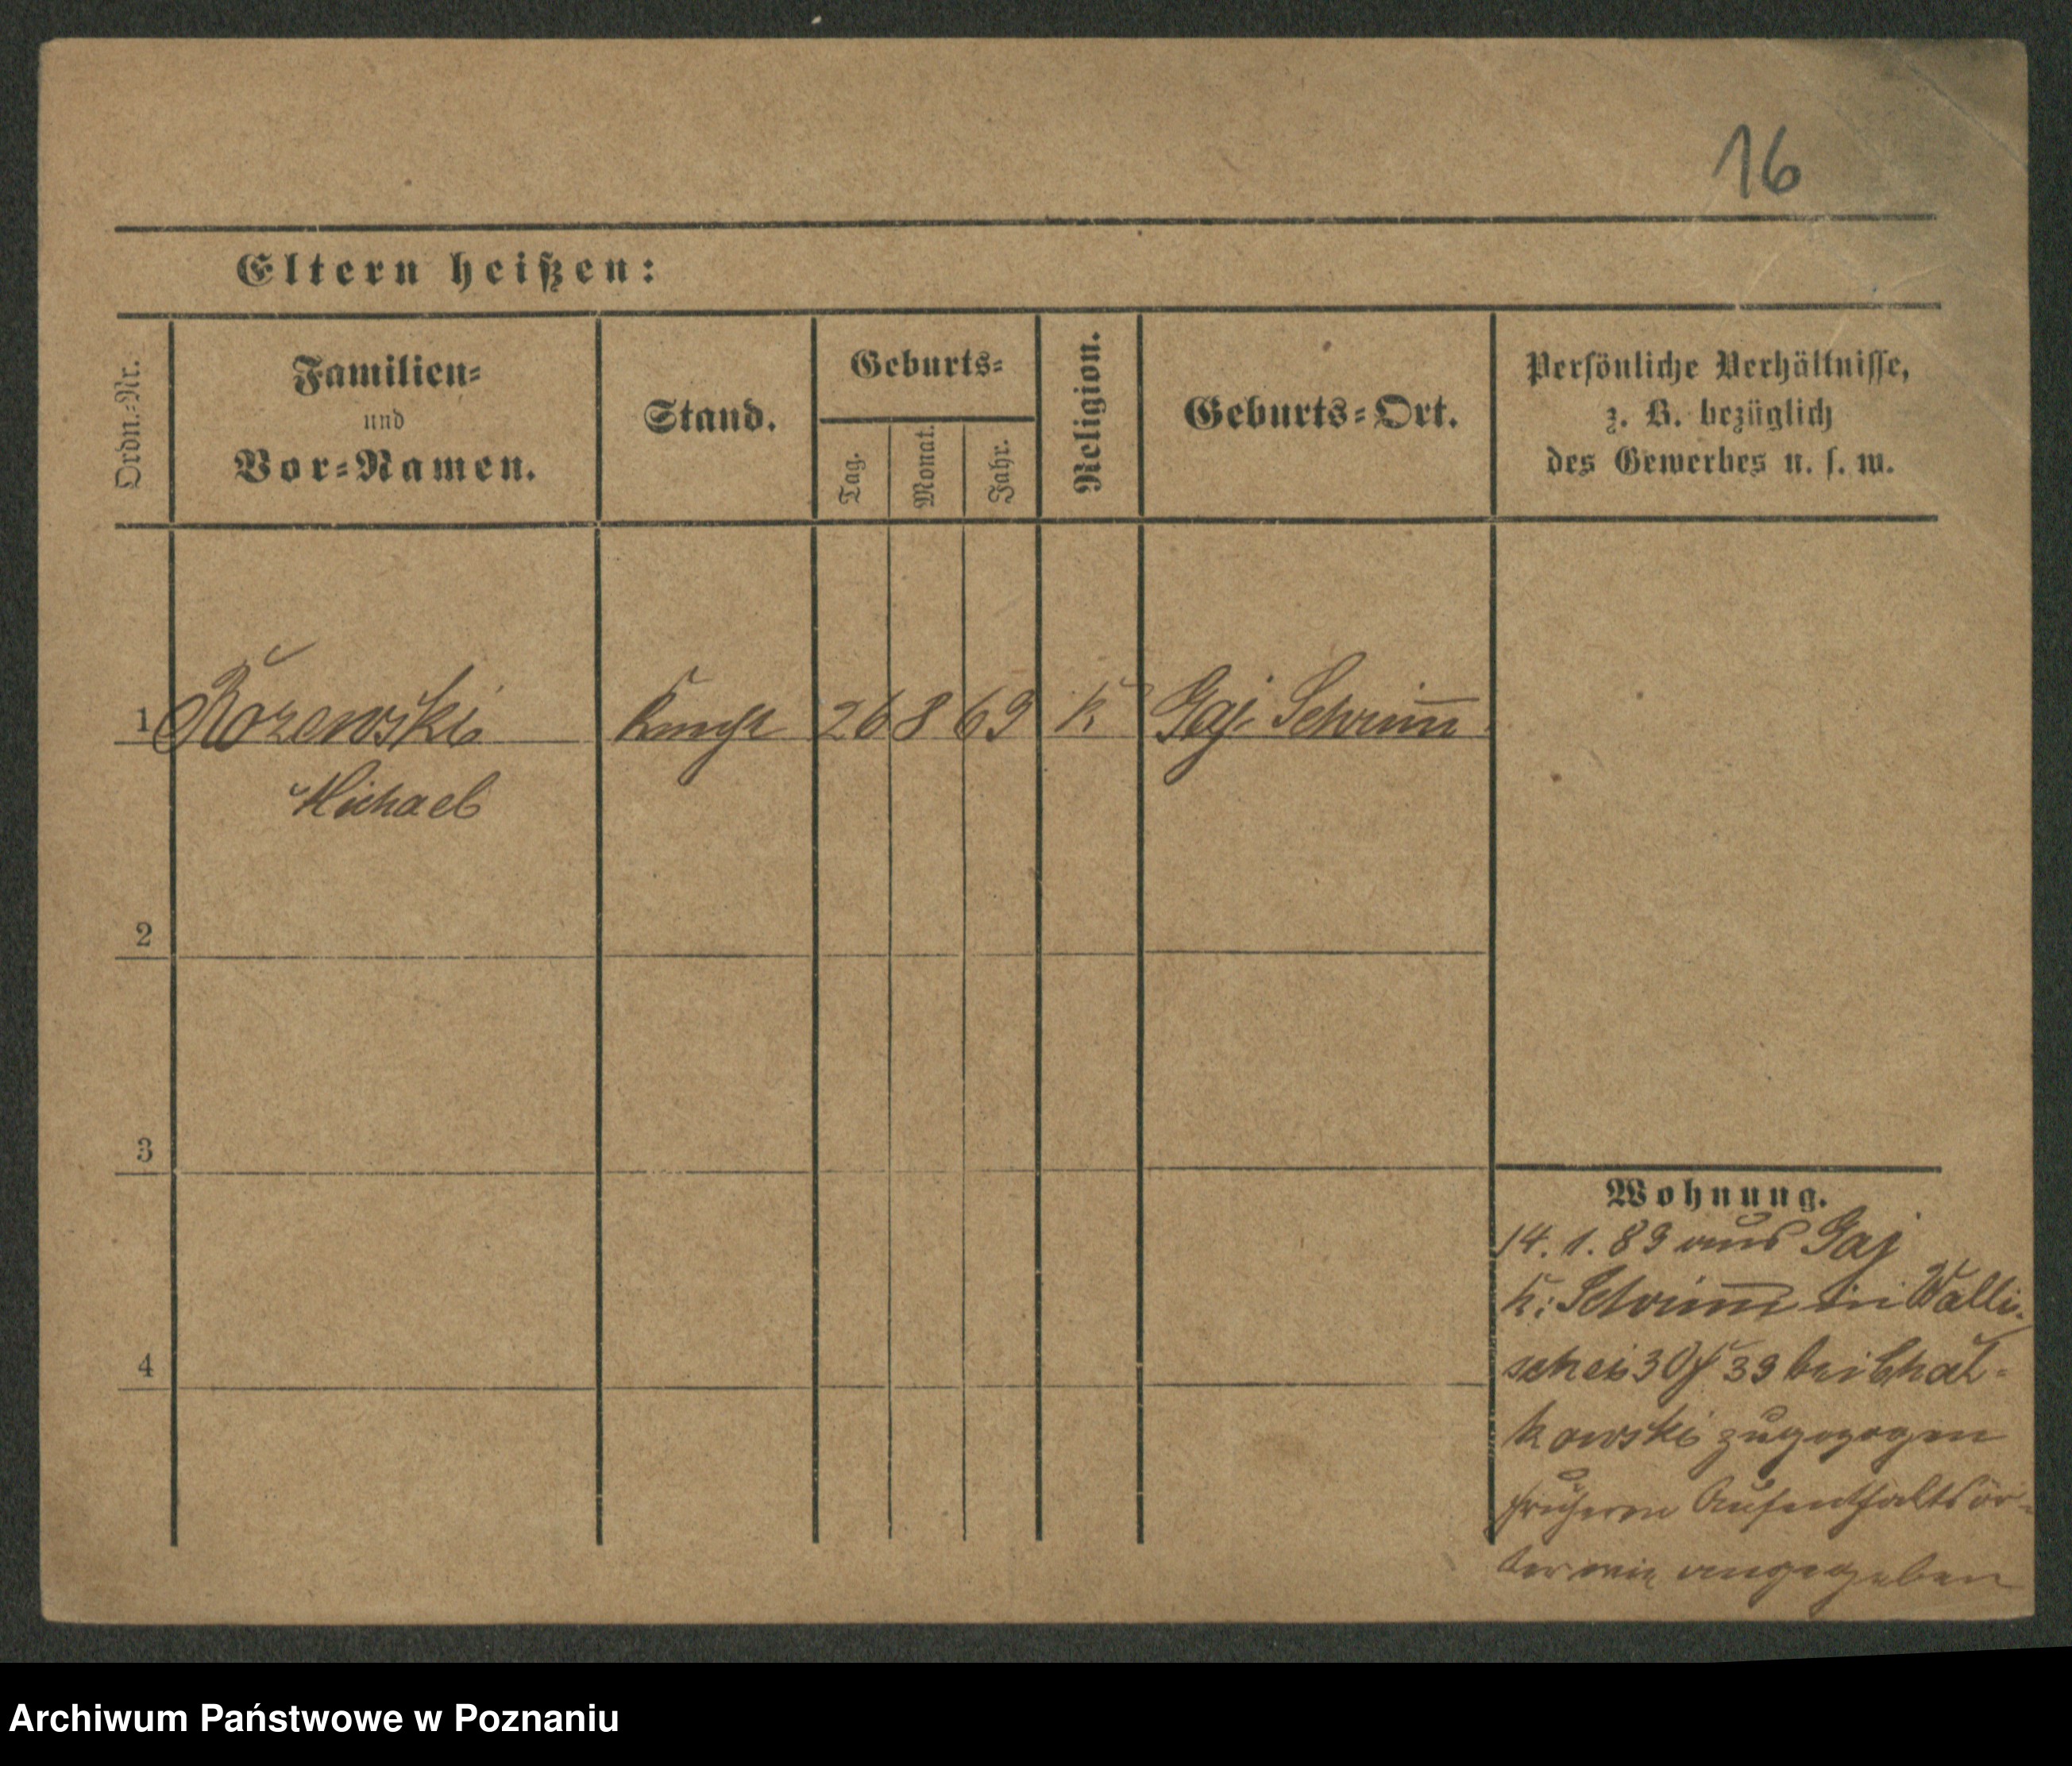 16
Eltern heißen:
Ordn.-Nr.
Familien-
und
Vor-Namen.
Stand.
Geburts-
Tag.
Monat.
Jahr.
Religion.
Geburts-Ort.
Persönliche Verhältnisse,
z. B. bezüglich
des Gewerbes u. s. w.
1 Rozewski Knecht 26 8 69 K Gaj Schrim̅
Michael
2
3
4
Wohnung.
14. 1. 89 aus Gaj
K: Schrim̅ in Walli-
schei 30/ 39 bei Chat-
kowski zugezogen
früheren Aufenthaltsör-
ter wie angegeben
Archiwum Państwowe w Poznaniu